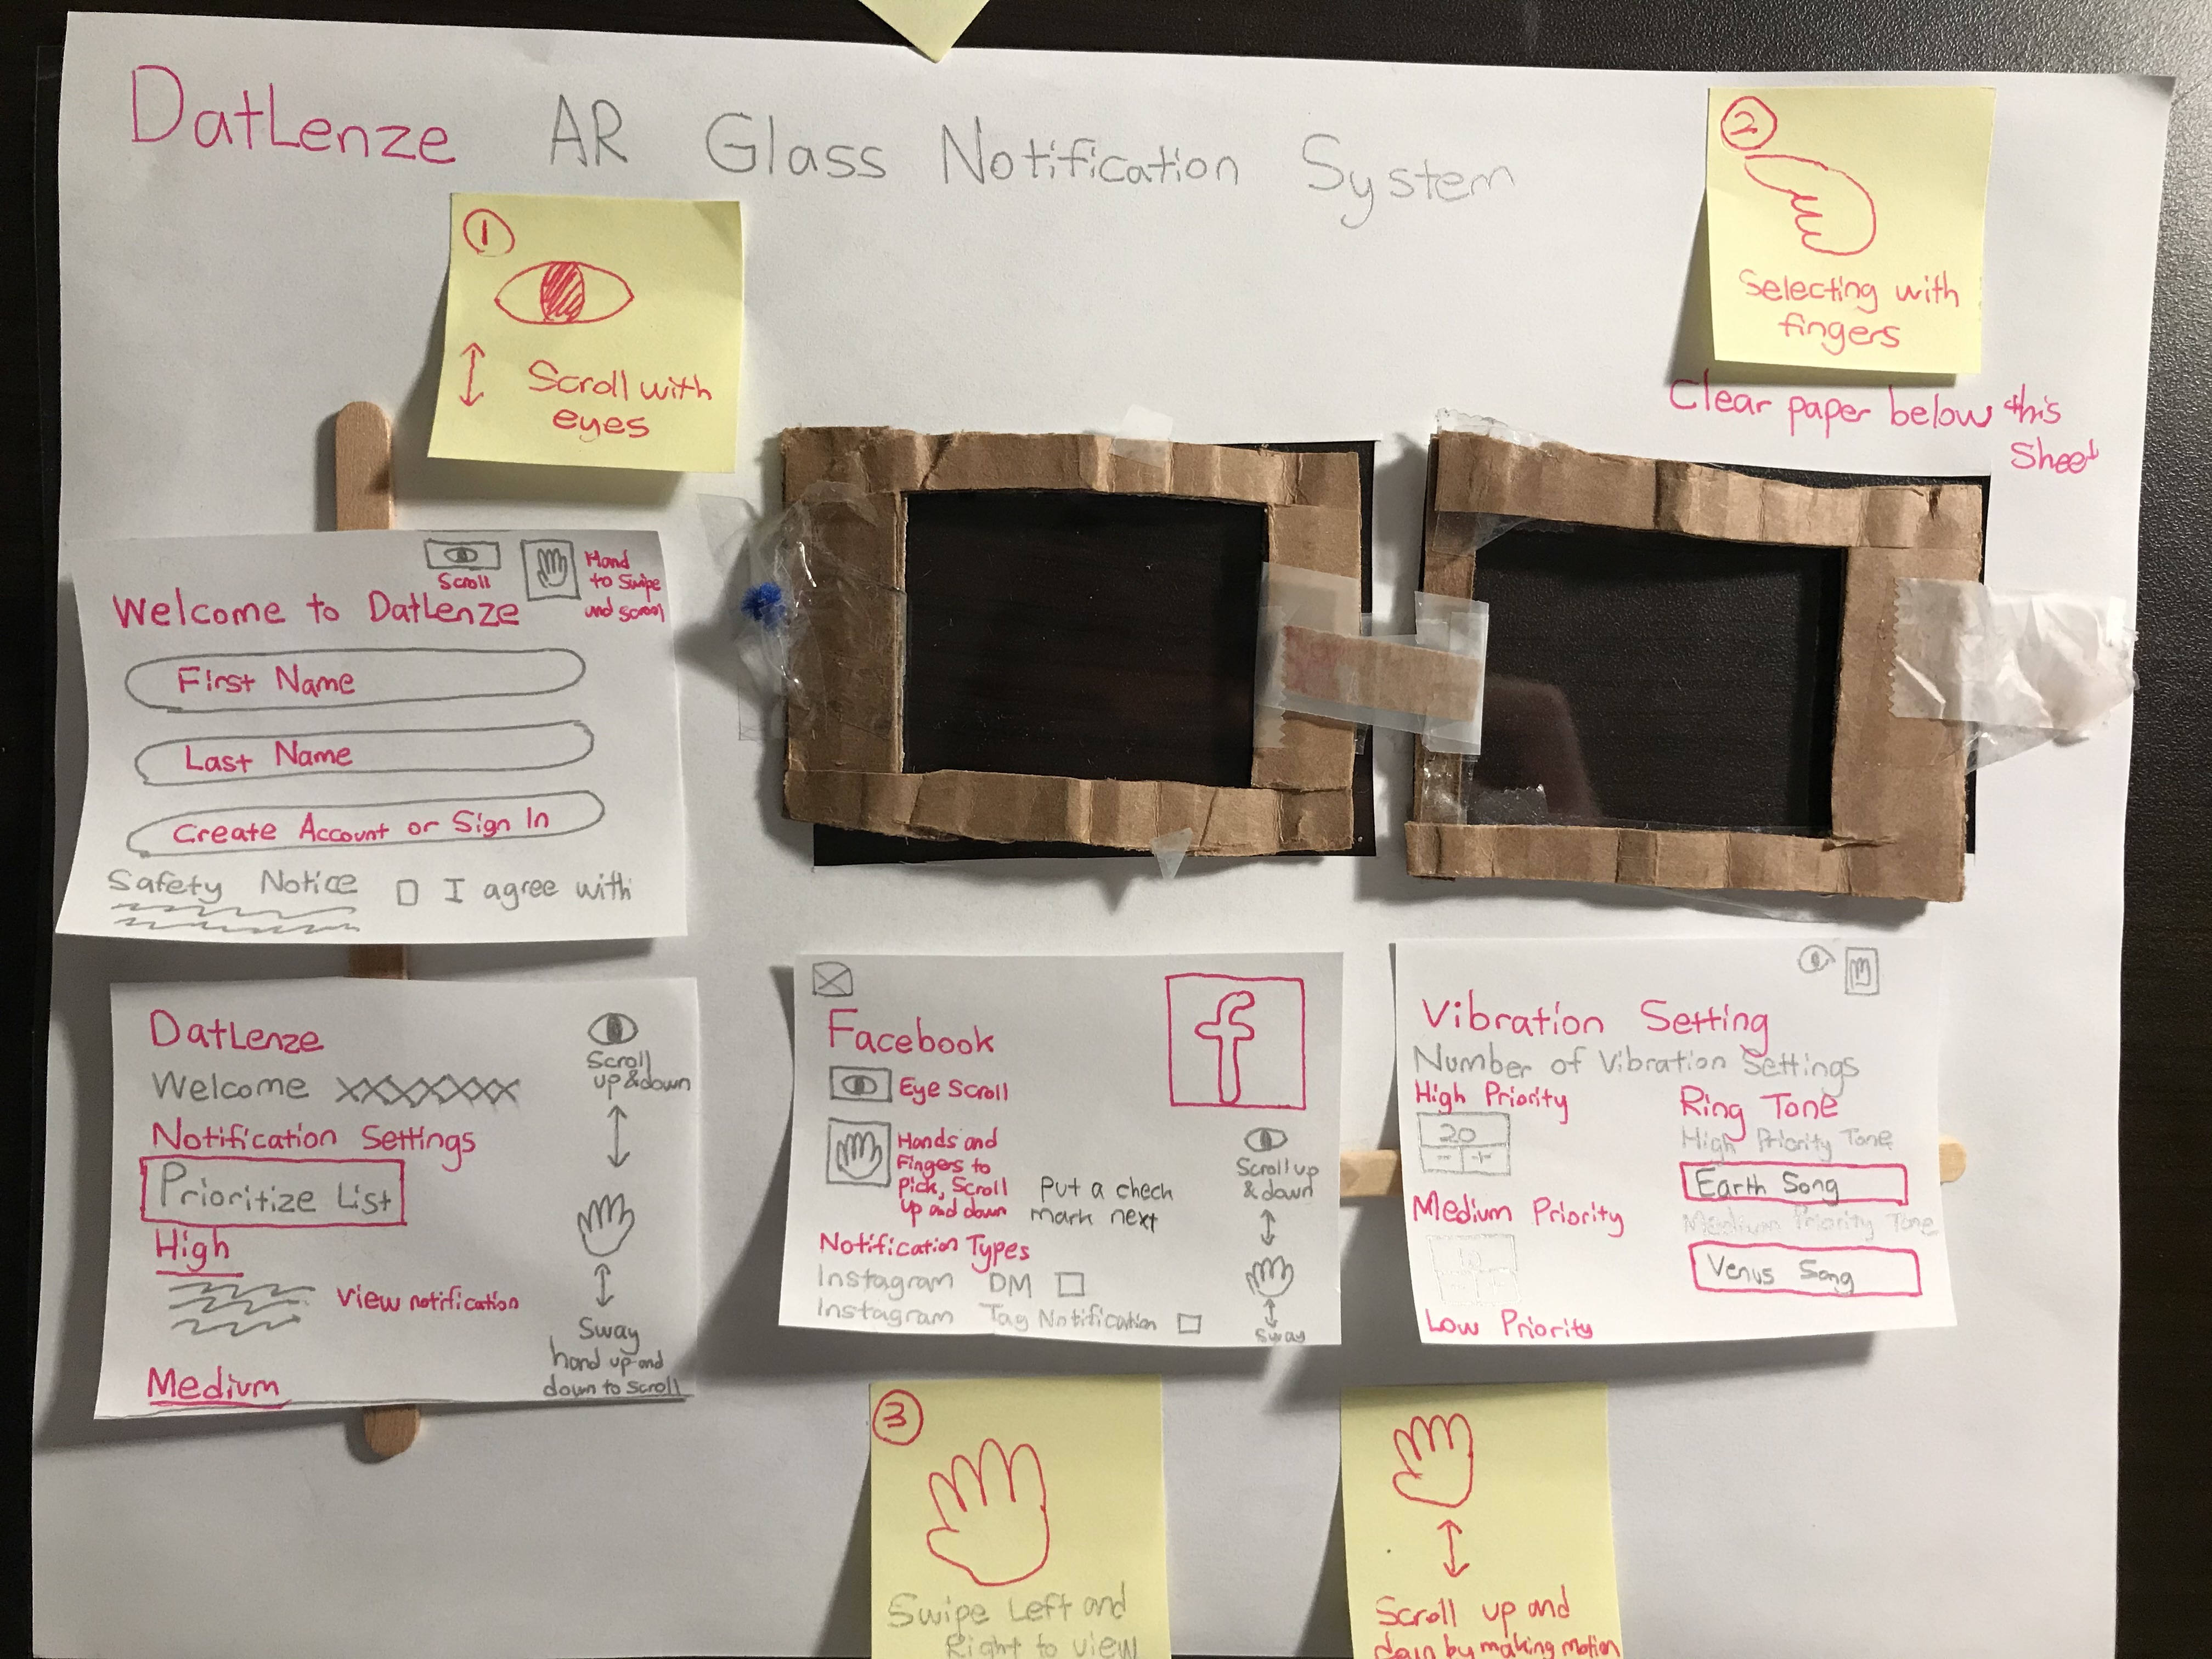 DatLenze AR Glass Notification System
1
Scroll with
eyes
2
Selecting with
fingers
Clear paper below this
Sheet
Scroll
Hand
to Swipe
and scroll
Welcome to DatLenze
First Name
Last Name
Create Account or Sign In
Safety Notice
I agree with
DatLenze
Welcome XXXXXX
Notification Settings
Prioritize List
High
View notification
Medium
Scroll
up & down
Sway
hand up and
down to scroll
Facebook
f
Eye Scroll
Hands and
Fingers to
pick, Scroll
Up and down
Put a check
mark next
Notification Types
Instagram DM
Instagram Tag Notification
Scroll up
& down
Sway
Vibration Setting
Number of Vibration Settings
High Priority
20
- +
Medium Priority
10
Low Priority
Ring Tone
High Priority Tone
Earth Song
Medium Priority Tone
Venus Song
3
Swipe Left and
Right to view
Scroll up and
down by making motion